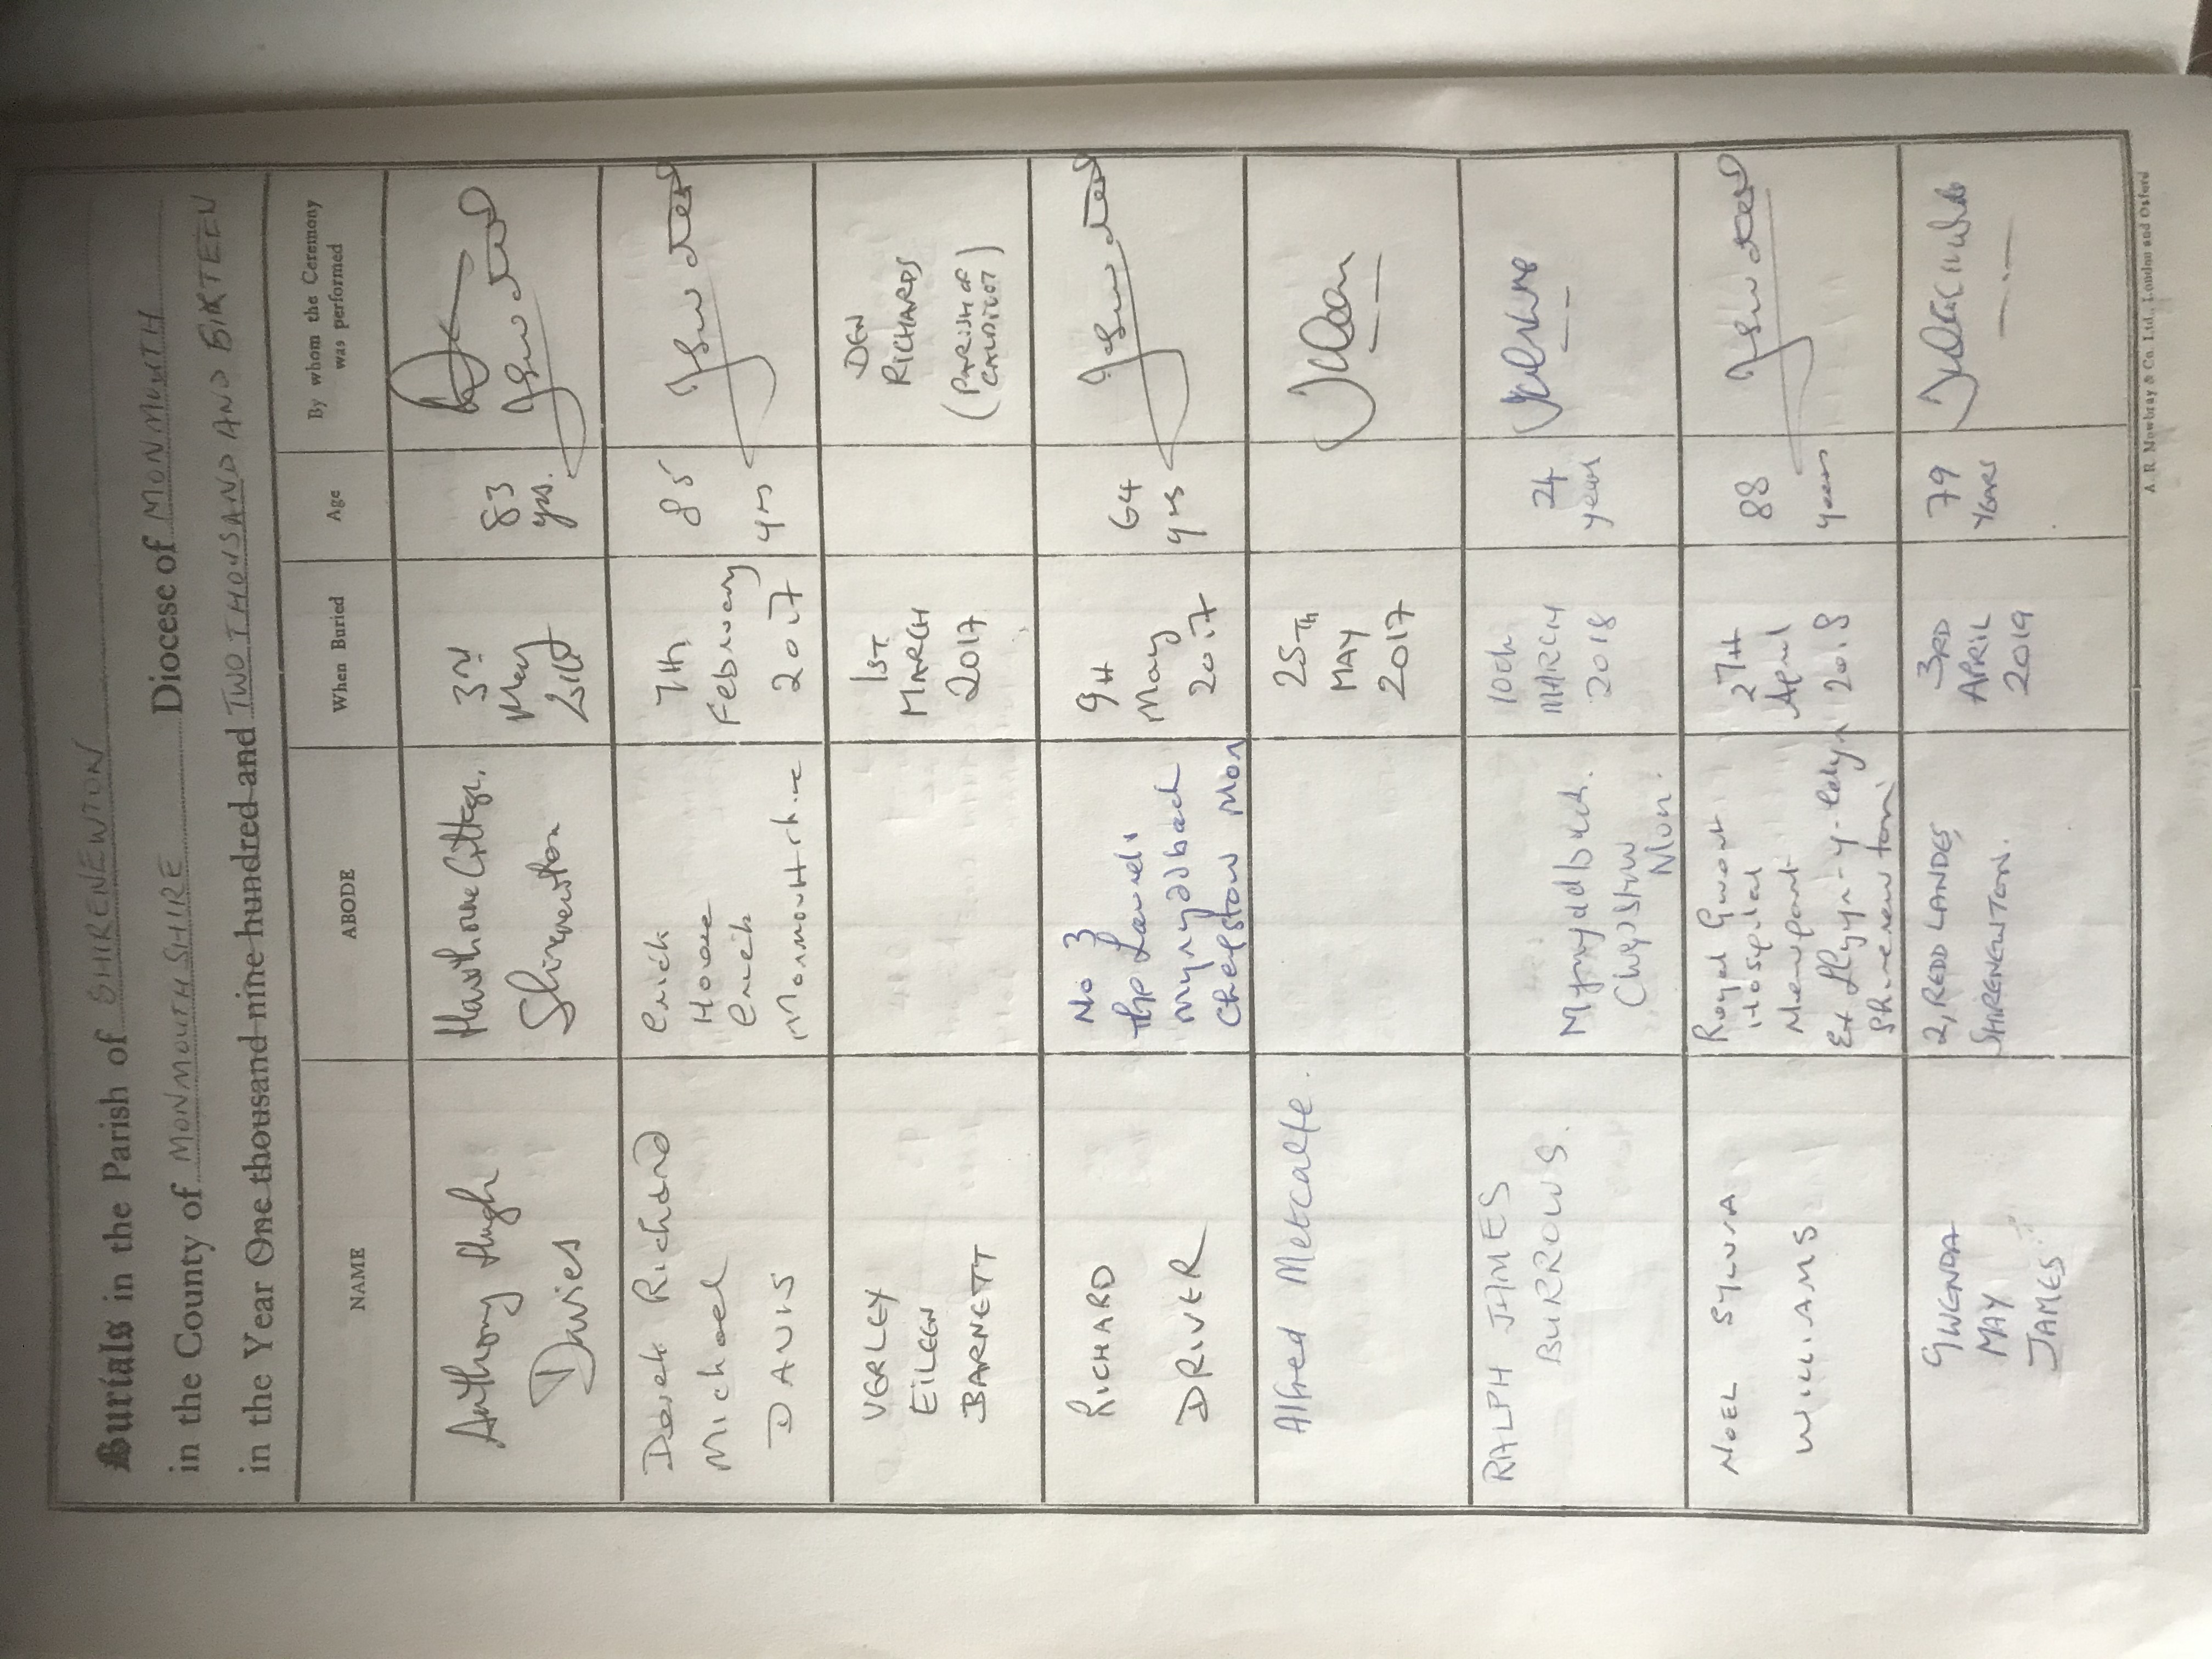 Burials in the Parish of SHIRENEWTON Diocese of MONMOUTH
in the County of MONMOUTHSHIRE
in the Year One thousand nine hundred and TWO THOUSAND AND SIXTEEN
NAME ABODE When Buried Age By whom the Ceremony was performed
Anthony Hugh
Davies
Hawthorne Cottage,
Shirenewton
3rd
May
83
yrs.
Derek Richard
Michael
DAVIS
Crick
House
Crick
Monmouthshire
7th
February
2017
85
yrs
VERLEY
EILEEN
BARNETT
1ST
MARCH
2017
DEN
RICHARDS
(PARISH OF
CALDICOT)
RICHARD
DRIVER
No 3
the Laurels
Mynyddbach
Chepstow Mon
9th
May
2017
64
yrs
Alfred Metcalfe.
25TH
MAY
2017
RALPH JAMES
BURROWS.
Mynyddbach.
Chepstow
Mon.
10th
MARCH
2018
24
years
NOEL SYLVIA
WILLIAMS
Royal Gwent
Hospital
Newport
Shirenewton
27th
April
2018
88
years
GWENDA
MAY
JAMES
2, REDD LANDES,
SHIRENEWTON.
3RD
APRIL
2019
79
YEARS
A. R. Mowbray & Co. Ltd., London and Oxford